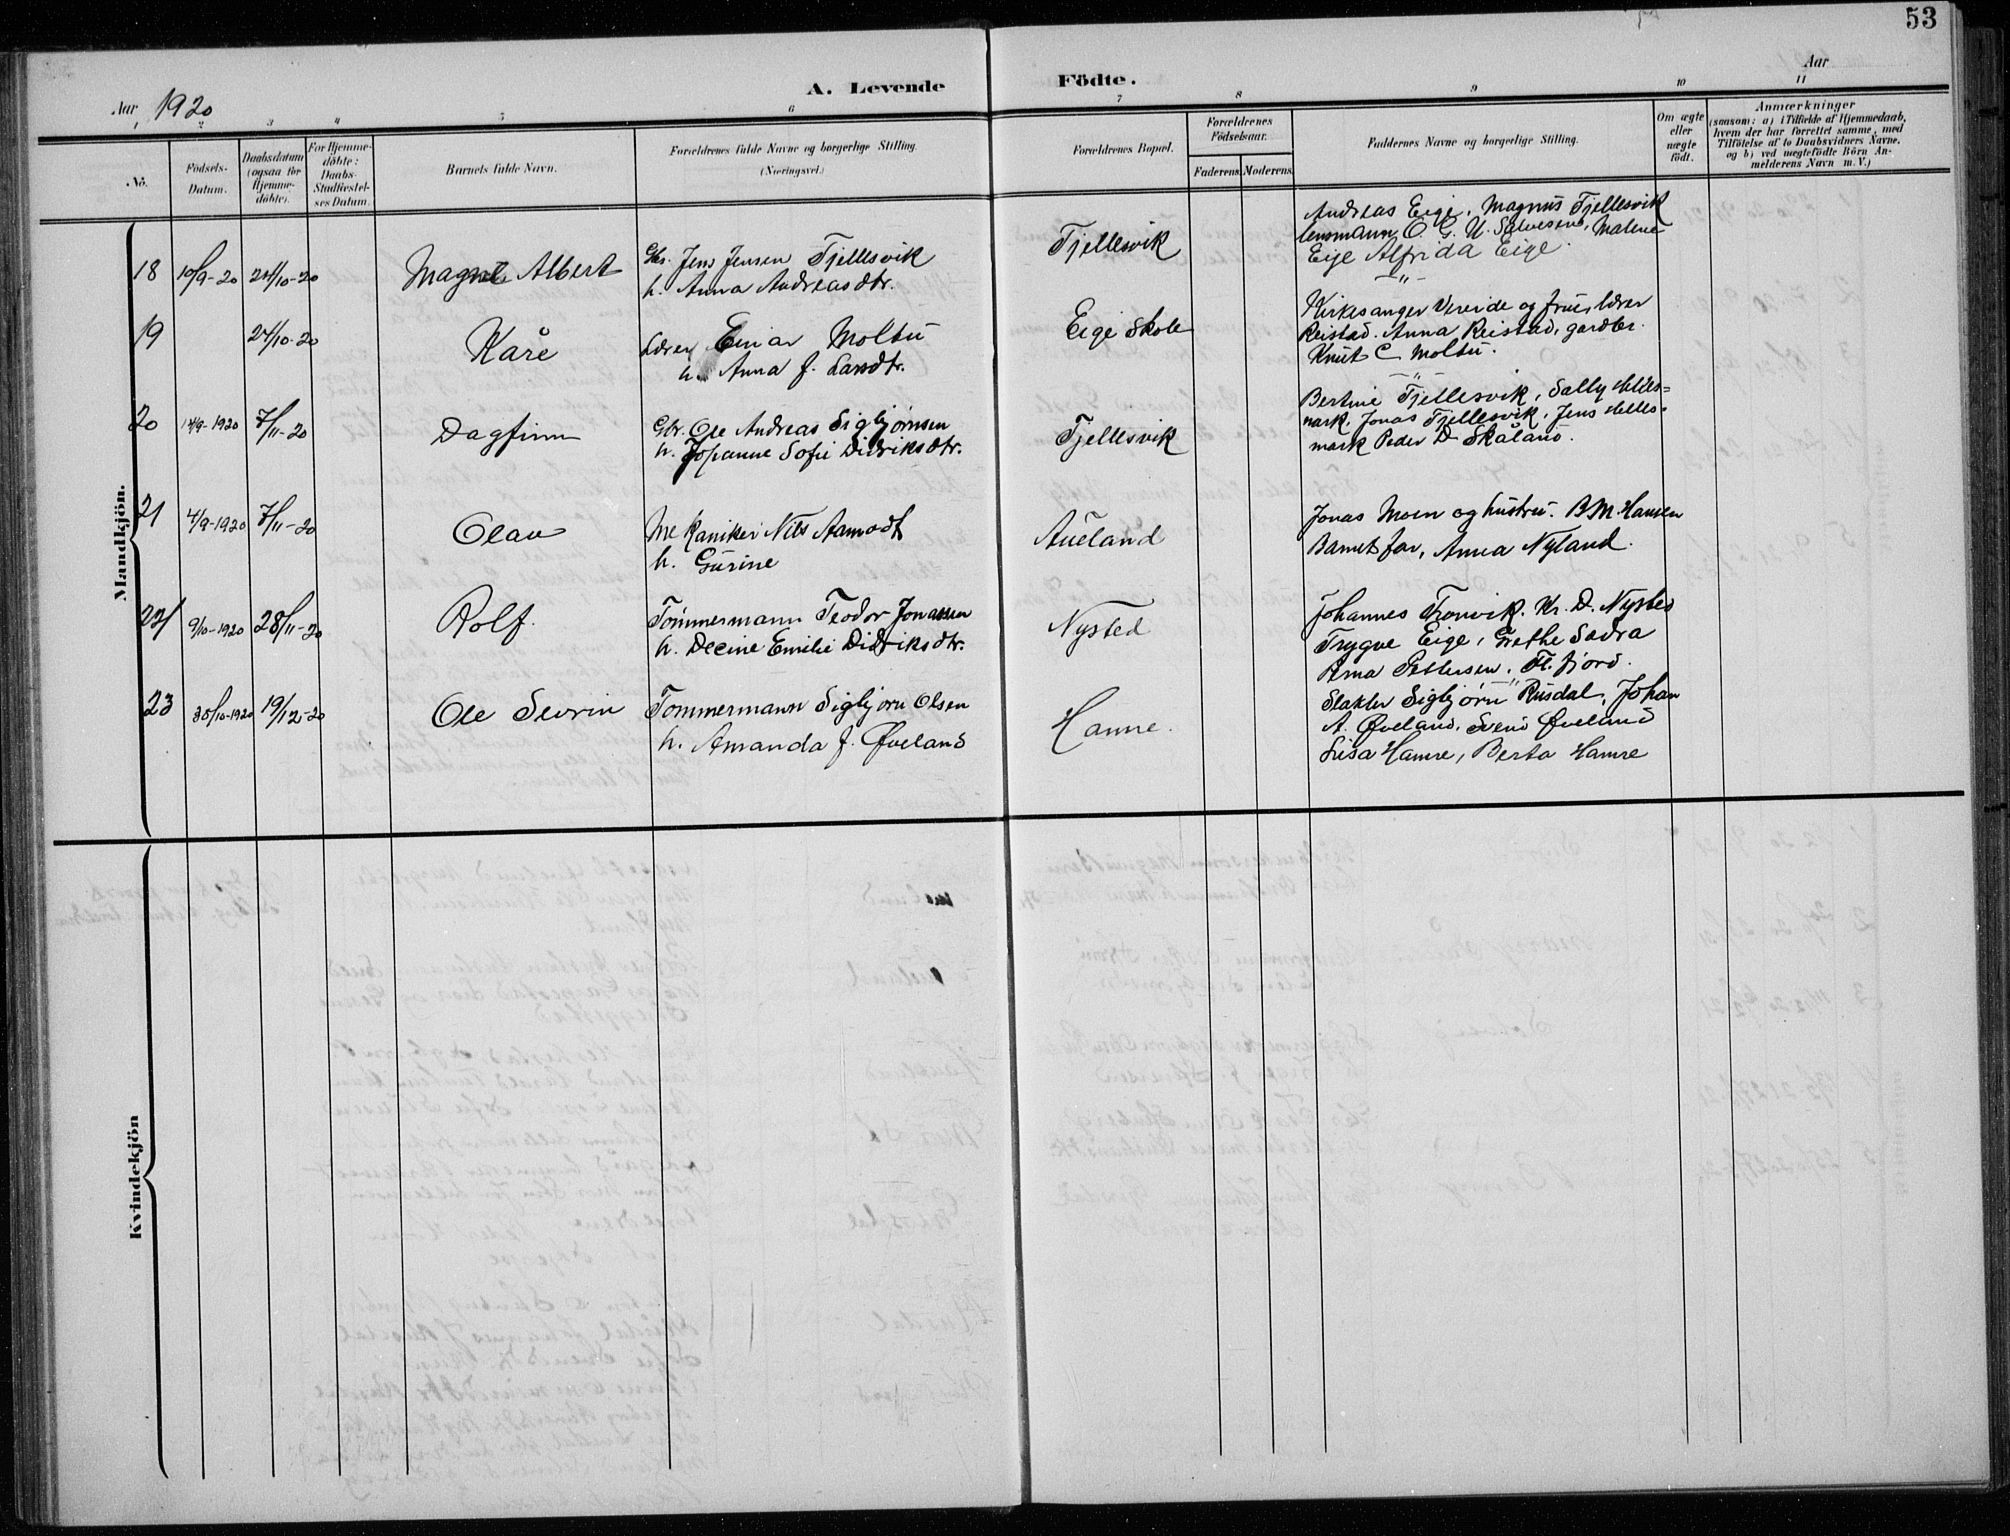 53
Aar 1920
A. Levende Födte.
Aar
1 2 3 4 5 6 7 8 9 10 11
No.
Födsels-Datum.
Daabsdatum (ogsaa for Hjemme-döbte).
For Hjemme-döbte: Daabs-Stadfæstel-ses Datum.
Barnets fulde Navn.
Forældrenes fulde Navne og borgerlige Stilling. (Næringsvei.)
Forældrenes Bopæl.
Forældrenes Födselsaar.
Faderens. Moderens.
Faddernes Navne og borgerlige Stilling.
Om ægte eller uægte födt.
Anmærkninger
(saasom: a) i Tilfælde af Hjemmedaab, hvem der har forrettet samme, med Tilföielse af to Daabsvidners Navne, og b) ved uægtefödte Börn Anmelderens Navn m. V.)
Mandkjön.
18 10/9-20 24/10-20 Magne Albert
Gbr. Jens Jensen Tjellesvik
h. Anna Andreasdtr.
Tjellesvik
Andreas Eige, Magnus Tjellesvik
lensmann O. G. U. Salvesen, Malene
Eige Alfrida Eige.
19 24/10-20 Kåre
Lærer Einar Moltu
h. Anna J. Larsdtr.
Eige Skole
Kirkesanger Vereide og frue, lærer
Reistad. Anna Reistad, gardbr.
Knut C Moltu.
20 14/9-1920 7/11-20 Dagfinn
Gbr. Ole Andreas Sigbjørnsen
h. Johanne Sofie Didriksdtr.
Tjellesvik
Bertine Tjellesvik, Sally Helles=
mark, Jonas Tjellesvik, Jens Helles=
mark Peder D Skåland.
21 4/9-1920 7/11-20 Olav
Mekaniker Nils Aamodt
h. Gurine
Aueland
Jonas Moen og hustru. B M Hansen
Barnets far, Anna Nyland.
22 9/10-1920 28/11-20 Rolf.
Tömmermann Teodor Jonassen
h. Decine Emilie Didriksdtr.
Nysted
Johannes Tronvik. Kr. D. Nysted
Trygve Eige, Grethe Sodra
Arna Pettersen, Fl. fjord.
23 30/10-1920 19/12-20 Ole Sevrin
Tömmermann Sigbjørn Olsen
h. Amanda J. Øveland
Hamre.
Slakter Sigbjørn Rusdal, Johan
A. Øveland, Svend Øveland
Lisa Hamre, Berta Hamre
Kvindekjön